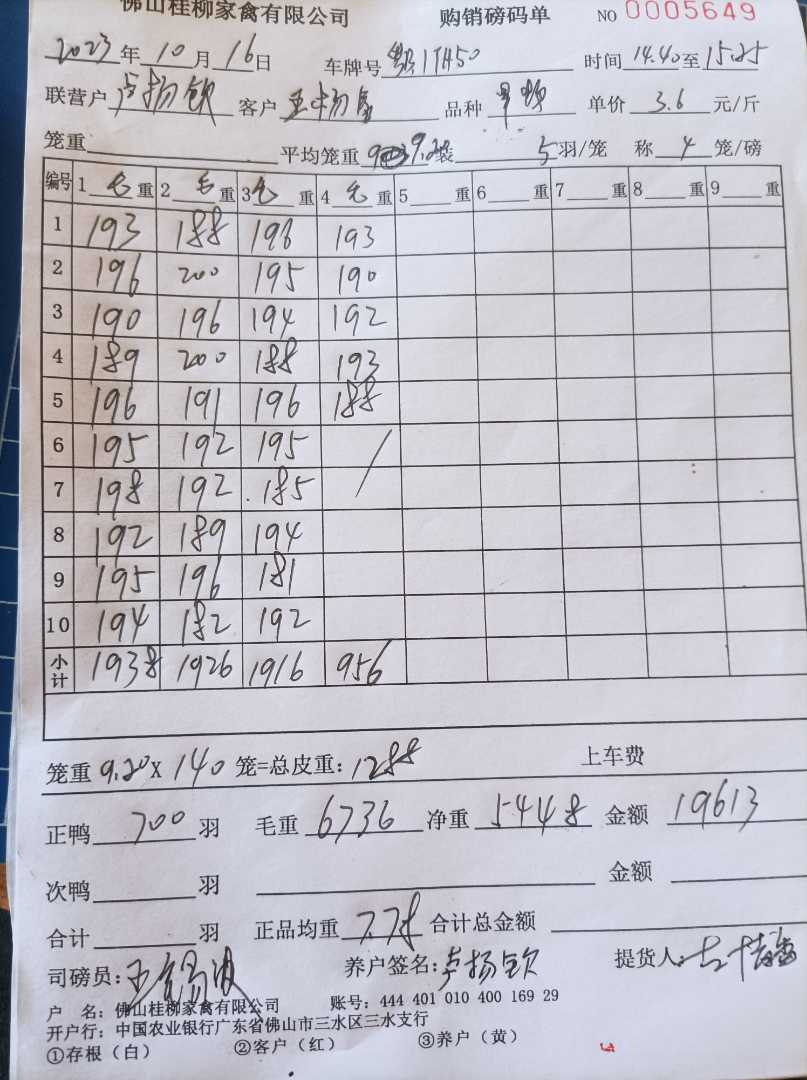 佛山桂柳家禽有限公司 购销磅码单 NO 0005649
2023年 10月 16日 车牌号 1TH50 时间 14.40至 15.25
联营户 卢扬钦 客户 品种 单价 3.6 元/斤
笼重 平均笼重 9.20 装 5羽/笼 称 4 笼/磅
编号 1 毛重 2 毛重 3 毛重 4 毛重 5 重 6 重 7 重 8 重 9 重
1 193 188 196 193
2 196 200 195 190
3 190 196 194 192
4 189 200 188 193
5 196 191 196 188
6 195 192 195 /
7 198 192 185
8 192 189 194
9 195 196 181
10 194 182 192
小计 1938 1926 1916 956
笼重 9.20 X 140 笼=总皮重: 1288 上车费
正鸭 700 羽 毛重 6736 净重 5448 金额 19613
次鸭 羽 金额
合计 羽 正品均重 7.78 合计总金额
司磅员: 养户签名: 卢扬钦 提货人:
户 名: 佛山桂柳家禽有限公司 账号: 444 401 010 400 169 29
开户行: 中国农业银行广东省佛山市三水区三水支行
①存根(白) ②客户(红) ③养户(黄)